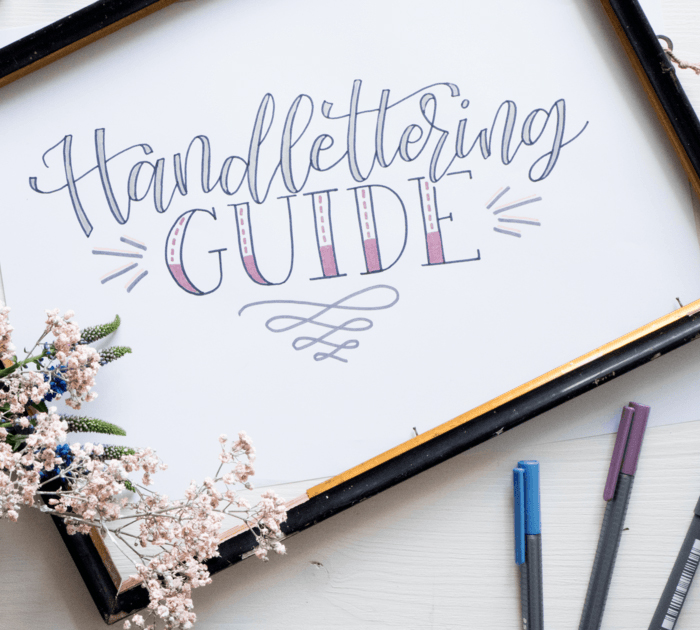 Handlettering
GUIDE